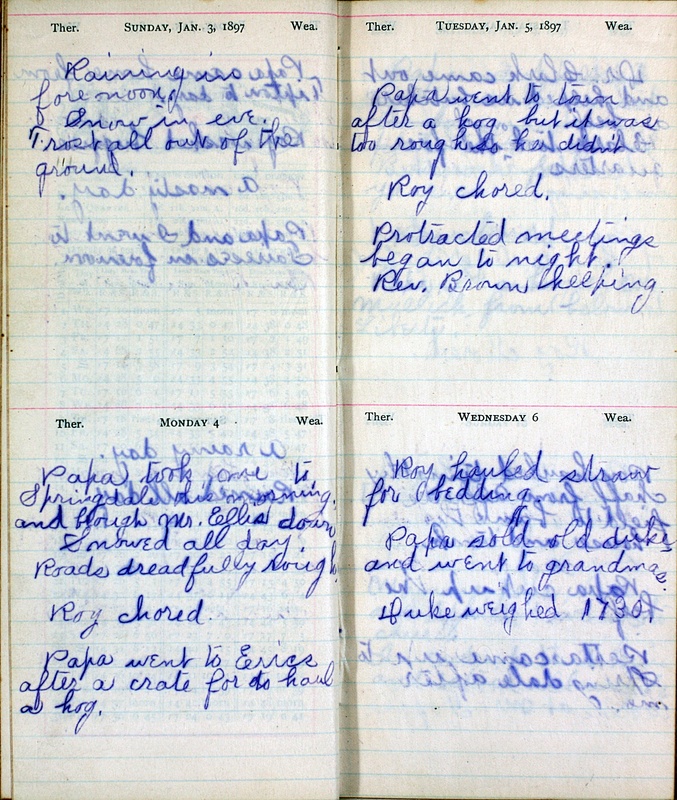 Ther. SUNDAY, JAN. 3, 1897 Wea.
Raining in a
forenoon,
Snow in eve.
Frost all out of the
ground.
Ther. MONDAY 4 Wea.
Papa took me to
Springdale this morning,
and brough Mr. Ellis down
Snowed all day.
Roads dreadfully rough
Roy chored.
Papa went to Erics
after a crate for to haul
a hog.
Ther. TUESDAY, JAN. 5, 1897 Wea.
Papa went to town
after a hog but it was
too rough so he didn't
Roy chored.
Protracted meetings
began to night.
Rev. Brown helping
Ther. WEDNESDAY 6 Wea.
Roy hauled straw
for bedding
Papa sold old duke
and went to grandmas.
Duke weighed 1730